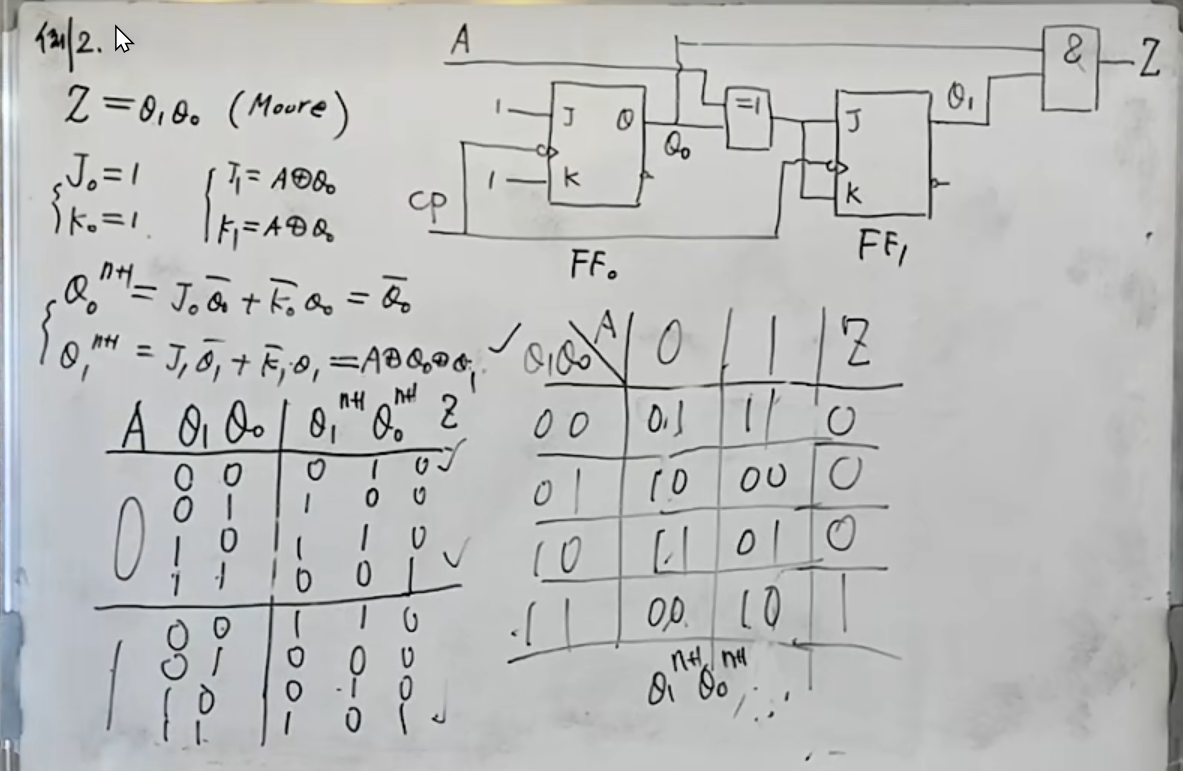 例2.
Z = Q₁Q₀ (Moore)
J₀ = 1
K₀ = 1
J₁ = A⊕Q₀
K₁ = A⊕Q₀
Q₀ⁿ⁺¹ = J₀Q̅₀ + K̅₀Q₀ = Q̅₀
Q₁ⁿ⁺¹ = J₁Q̅₁ + K̅₁·Q₁ = A⊕Q₀⊕Q₁
A Q₁ Q₀ | Q₁ⁿ⁺¹ Q₀ⁿ⁺¹ Z
0 0 | 0 1 0 ✓
0 1 | 1 0 0
0
1 0 | 1 1 0
1 1 | 0 0 1 ✓
0 0 | 1 1 0
0 1 | 0 0 0
1
1 0 | 0 1 0
1 1 | 1 0 1 ✓
A
1 J Q
Q₀
1 K
CP
FF₀
=1
J
K
Q₁
FF₁
&
Z
✓ Q₁Q₀ \ A | 0 | 1 | Z
0 0 | 01 | 11 | 0
0 1 | 10 | 00 | 0
1 0 | 11 | 01 | 0
1 1 | 00 | 10 | 1
Q₁ⁿ⁺¹ Q₀ⁿ⁺¹